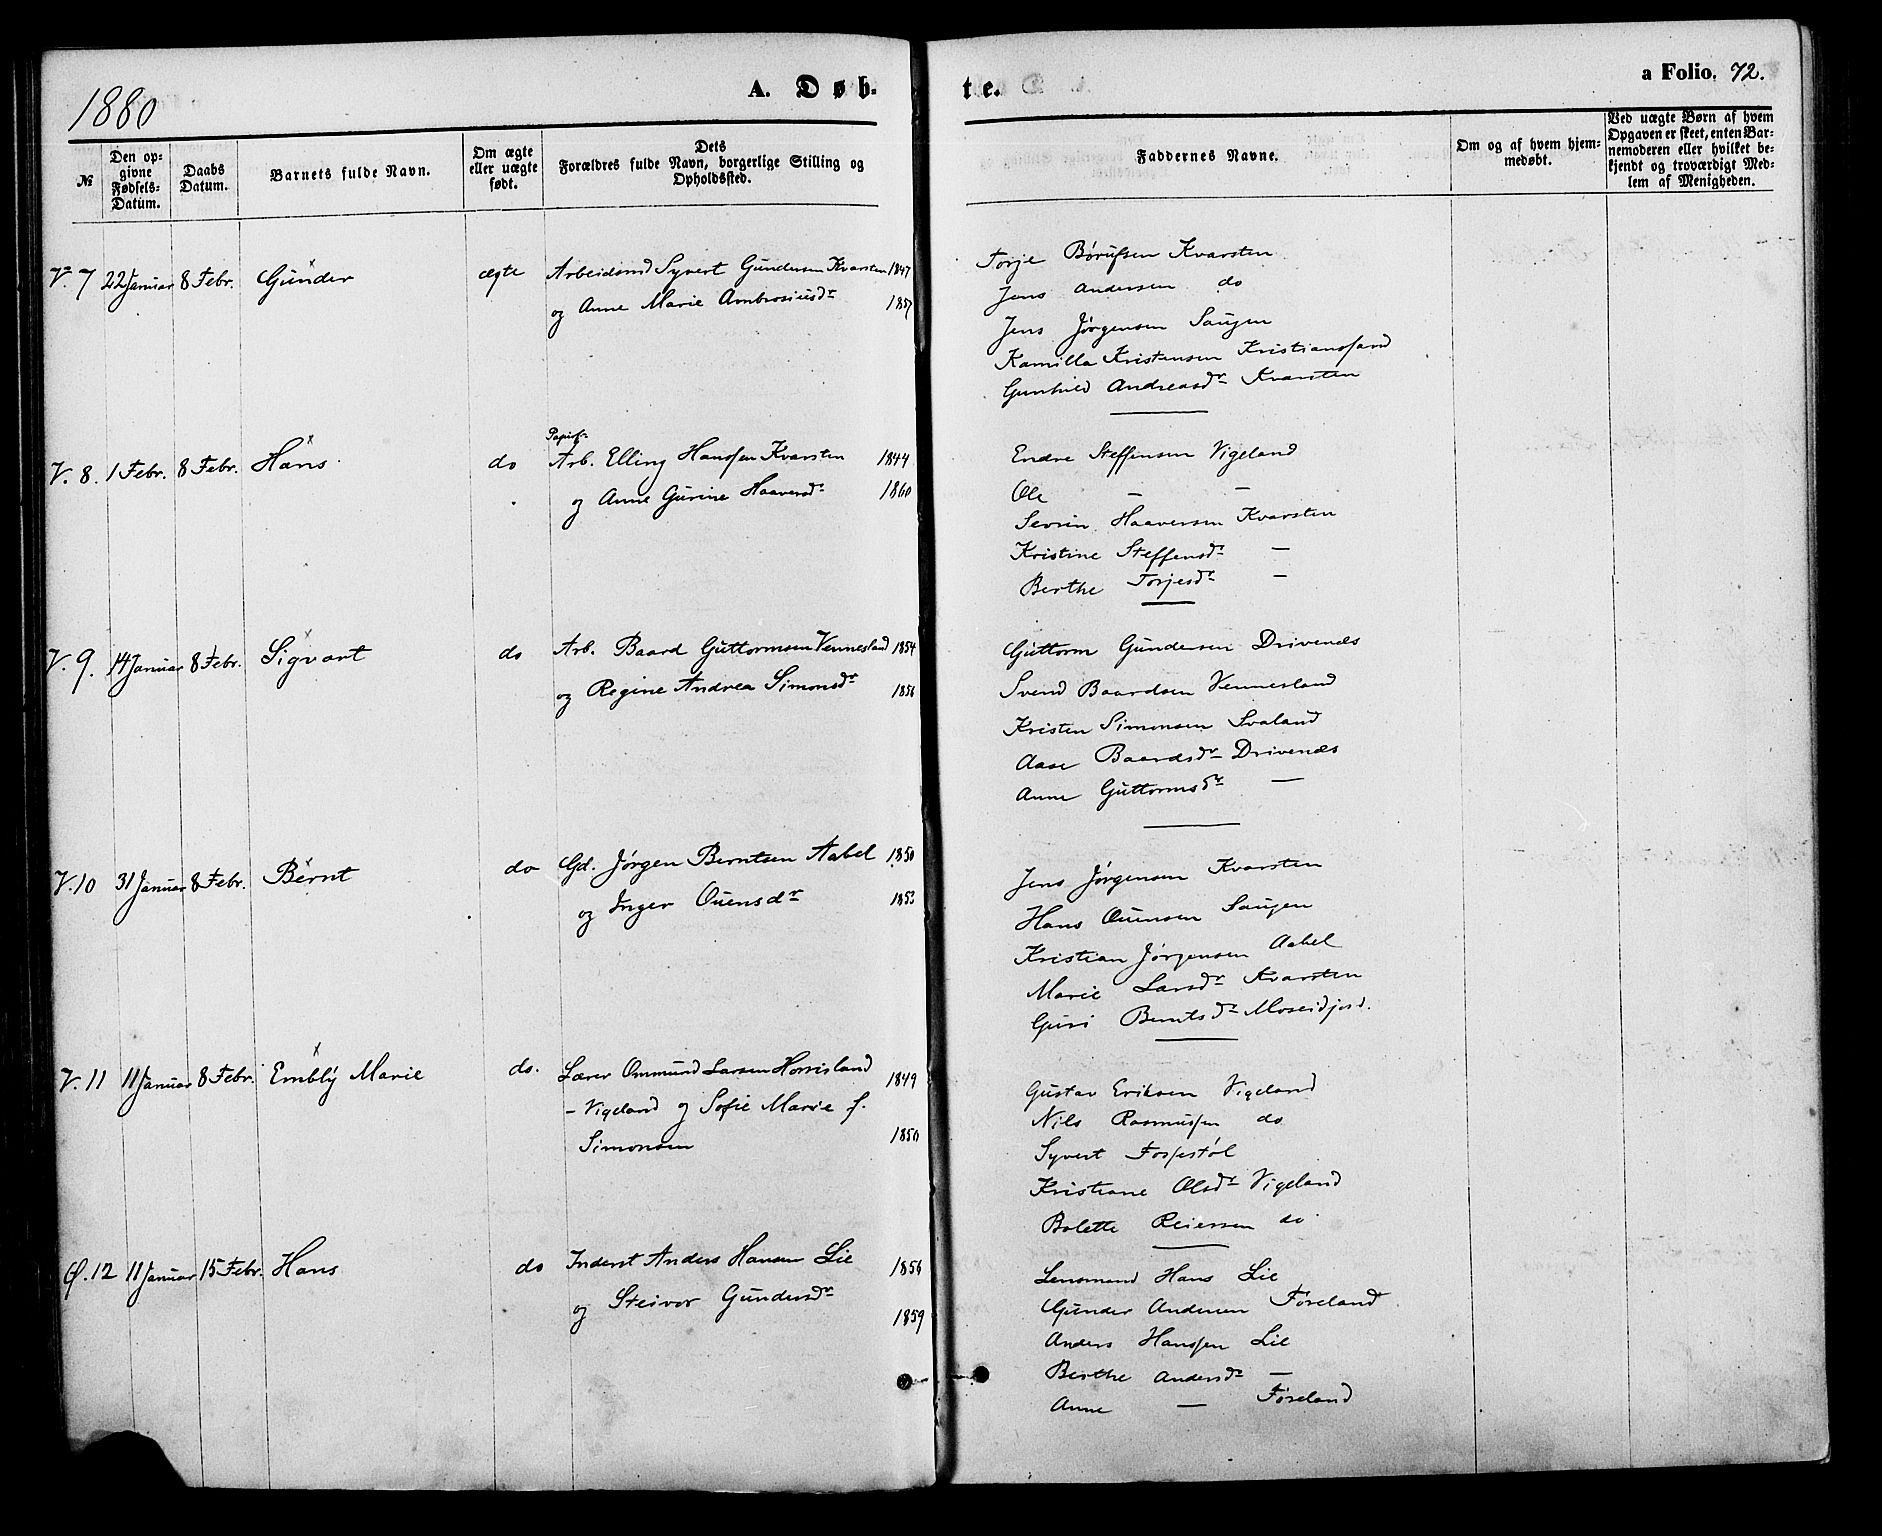 1880
A. Døb-
te.
a Folio. 72.
№
Den opgivne Fødsels-Datum.
Daabs Datum.
Barnets fulde Navn.
Om ægte eller uægte født.
Dets Forældres fulde Navn, borgerlige Stilling og Opholdssted.
Faddernes Navne.
Om og af hvem hjemmedøbt.
Ved uægte Børn af hvem Opgaven er skeet, enten Barnemoderen eller hvilket bekjendt og troværdigt Medlem af Menigheden.
V. 7 22 Januar 8 Febr. Gunder ægte Arbeidsmd Syvert Gundersen Kvarsten 1847
og Anne Marie Ambrosiusdr 1857
Torje Børufsen Kvarsten
Jens Andersen do
Jens Jørgensen Saugen
Kamilla Kristensen Kristianssand
Gunhild Andreasdr Kvarsten
V. 8. 1 Febr. 8 Febr. Hans do
Arb. Elling Hanssen Kvarsten 1844
og Anne Gurine Haaversdr 1860
Endre Steffensen Vigeland
Ole — —
Sevrin Haaversen Kvarsten
Kristine Steffensdr —
Berthe Torjesdr —
V. 9. 14 Januar 8 Febr. Sigvart do Arb. Baard Guttormsen Vennesland 1854
og Regine Andrea Simonsdr 1856
Guttorm Gundersen Drivenæs
Svend Baardsen Vennesland
Kristen Simonsen Svaland
Aase Baardsdr Drivenæs
Anne Guttormsdr —
V. 10 31 Januar 8 Febr. Bernt do Gd. Jørgen Berntsen Aabel 1850
og Inger Ouensdr 1853
Jens Jørgensen Kvarsten
Hans Ouensen Saugen
Kristian Jørgensen Aabel
Marie Larsdr Kvarsten
Guri Berntsdr Moseidjord.
V. 11 11 Januar 8 Febr. Embly Marie do. Lærer Ommund Larsen Horrisland 1849
- Vigeland og Sofie Marie f.
Simonsen 1850
Gustav Eriksen Vigeland
Nils Rasmussen do
Syvert Fossestøl
Kristiane Olsdr Vigeland
Bolette Reiersen do
Ø. 12 11 Januar 15 Febr. Hans do Inderst Anders Hansen Lie 1856
og Steivor Gundersdr 1859
Lensmand Hans Lie
Gunder Andersen Føreland
Anders Hanssen Lie
Berthe Andersdr —
Anne — Føreland